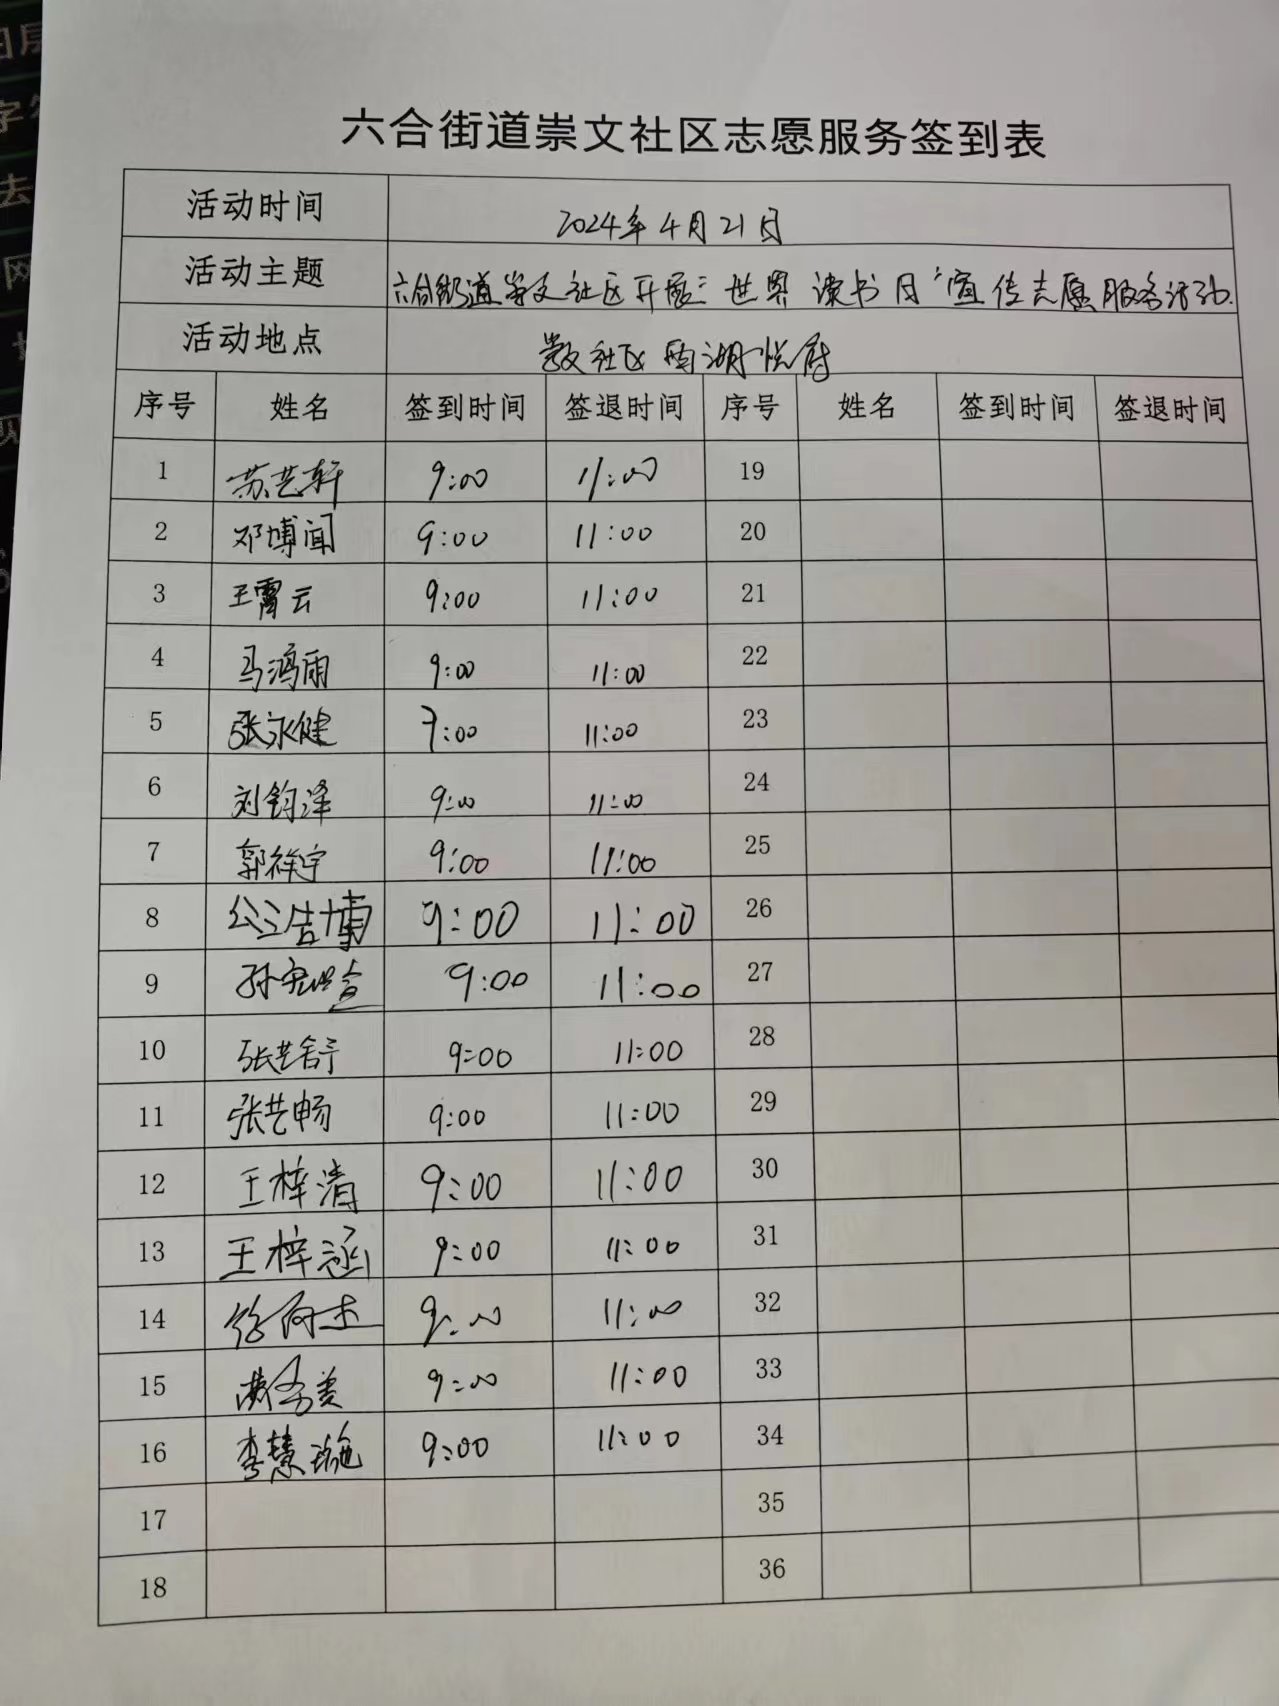 六合街道崇文社区志愿服务签到表
活动时间 2024年4月21日
活动主题 六合街道崇文社区开展"世界读书日"宣传志愿服务活动.
活动地点 崇文社区 湖悦府
序号 姓名 签到时间 签退时间 序号 姓名 签到时间 签退时间
1 苏艺轩 9:00 11:00 19
2 邓博闻 9:00 11:00 20
3 王霄云 9:00 11:00 21
4 马鸿雨 9:00 11:00 22
5 张永健 9:00 11:00 23
6 刘钧泽 9:00 11:00 24
7 郭祥宇 9:00 11:00 25
8 9:00 11:00 26
9 9:00 11:00 27
10 张艺舒 9:00 11:00 28
11 张艺畅 9:00 11:00 29
12 王梓清 9:00 11:00 30
13 王梓涵 9:00 11:00 31
14 9:00 11:00 32
15 9:00 11:00 33
16 李慧 9:00 11:00 34
17 35
18 36